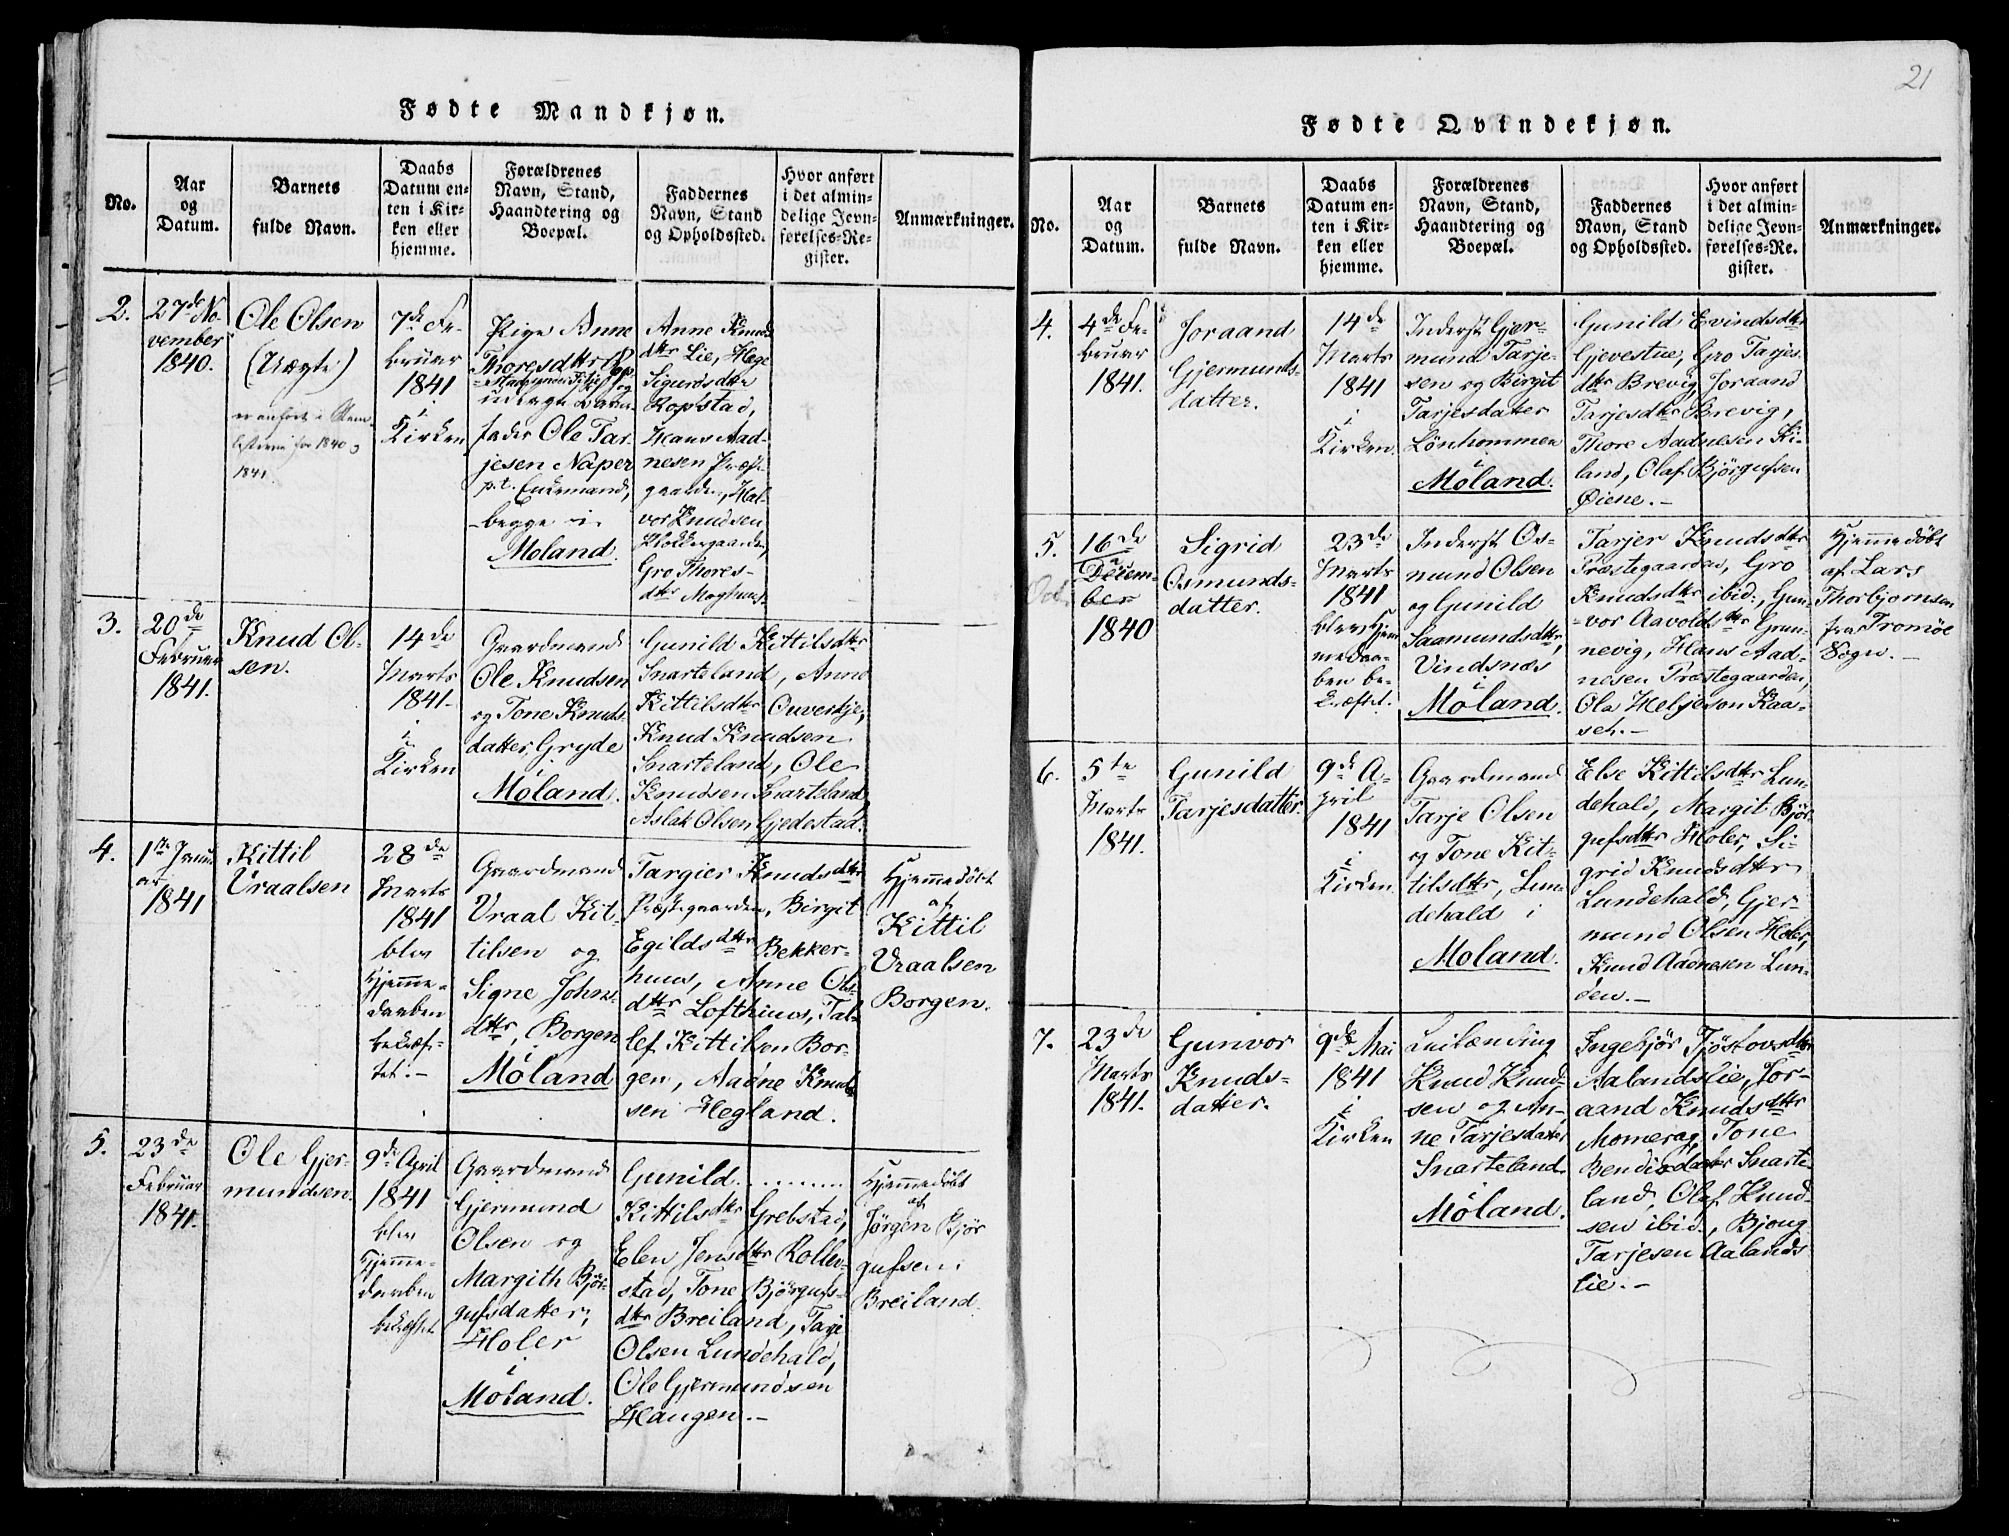 Fødte Mandkjøn.
No.
Aar
og
Datum.
Barnets
fulde Navn.
Daabs
Datum en-
ten i Kir-
ken eller
hjemme.
Forældrenes
Navn, Stand,
Haandtering og
Boepæl.
Faddernes
Navn, Stand
og Opholdssted.
Hvor anført
i det almin-
delige Jevn-
førelses-Re-
gister.
Anmærkninger.
2.
27de No-
vember
1840.
Ole Olsen
(Uægte)
er anført i
for 1840 og
1841.
7de Fe-
bruar
1841
i
Kirken
Pige Anne
Thoresdtr
fader Ole Tar-
jesen Naper
p.t. Enkemand,
begge i
Moland.
Anne Knuds
dtr Lie, Hege
Sigurdsdtr
Ropstad,
Hans Aad-
nesen Præste-
gaarden, Hal-
vor Knudsen
Klokkergaarden,
Gro Thores-
dtr
3.
20de
Februar
1841.
Knud Ol-
sen.
14de
Marts
1841.
i
Kirken
Gaardmand
Ole Knudsen
og Tone Knuds-
datter, Gryde
i
Moland.
Gunild Kittilsdtr
Snarteland, Anne
Kittilsdtr Ouverkje,
Knud Knudsen
Snarteland, Ole
Knudsen Snarteland
Aslak Olsen Gjedestad.
4.
1ste Janu-
ar
1841
Kittil
Vraalsen
28de
Marts
1841
blev
Hjemme-
daaben
bekræf-
tet.-
Gaardmand
Vraal Kit-
tilsen og
Signe Johns-
dtr, Borgen
i
Moland
Targier Knudsdtr
Præstegaarden, Birgit
Egildsdtr Bekker-
huus, Anne Ols-
dtr Lofthuus, Tal-
lef Kittilsen Bor-
gen, Aadne Knud-
sen Hegland.
Hjemmedöbt
af
Kittil
Vraalsen
Borgen.
5.
23de
Februar
1841.
Ole Gjer-
mundsen.
9de April
1841
blev
Hjemme-
daaben
bekræftet
Gaardmand
Gjermund
Olsen og
Margith Bjør-
gufsdatter,
Holer
i
Moland.
Gunild ........
Kittilsdtr Grebstad,
Elen Jensdtr Rollev-
stad, Tone Bjørgufs-
dtr Breiland, Tarje
Olsen Lundehald,
Ole Gjermundsen
Haugen.-
Hjemmedöbt
af
Jørgen Bjør
gufsen
Breiland.
21
Fødte Qvindekjøn.
No.
Aar
og
Datum.
Barnets
fulde Navn.
Daabs
Datum en-
ten i Kir-
ken eller
hjemme.
Forældrenes
Navn, Stand,
Haandtering og
Boepæl.
Faddernes
Navn, Stand
og Opholdssted.
Hvor anført
i det almin-
delige Jevn-
førelses-Re-
gister.
Anmærkninger.
4.
4de Fe-
bruar
1841.
Joraand
Gjermunds-
datter.
14de
Marts
1841
i
Kirken.
Inderst Gjer-
mund Tarje-
sen og Birgit
Tarjesdatter
Lönhommen
i
Moland.
Gunild Evindsdtr
Gjevestue, Gro Tarjes
dtr Brevig, Joraand
Tarjesdtr Brevig,
Thore Aadnesen Ki-
land, Olaf Bjørgufsen
Øiene.-
5.
16de
Decem-
ber
1840
Sigrid
Osmunds-
datter.
23de
Marts
1841
blev Hjem-
medaa-
ben be-
kræftet.
Inderst Os-
mund Olsen
og Gunild
Saamundsdtr,
Vindsnæs
i
Moland.
Tarjer Knudsdtr
Præstegaarden, Gro
Knudsdtr ibid:, Gun-
vor Aavoldsdtr Grun-
nevig, Hans Aad-
nesen Præstegaarden,
Ola Heljeson Kaa-
seh.-
Hjemmedöbt
af Lars
Thorbjornsen
fra Tromøe
Sogn.-
6.
5te
Marts
1841.
Gunild
Tarjesdatter.
9de A-
pril
1841
i
Kirken.
Gaardmand
Tarje Olsen
og Tone Kit-
tilsdtr, Lun-
dehald i
Moland.
Else Kittilsdtr Lun-
dehald, Margit Bjør-
gufsdtr Holer, Si-
grid Knudsdtr
Lundehald, Gjer-
mund Olsen Holer,
Knud Aadnesen Lun-
den.-
7.
23de
Marts
1841.
Gunvor
Knuds-
datter.
9de Mai
1841
i
Kirken
Leilænding
Knud Knud-
sen og An-
ne Tarjesdatter
Snarteland
i
Moland.
Ingebjør Tjöstovsdtr
Aalandslie, Jor-
aand Knudsdtr
Momerag, Tone
Bendixdatter Snarte-
land, Olaf Knud-
sen ibid., Bjoug
Tarjesen Aalands
lie.-